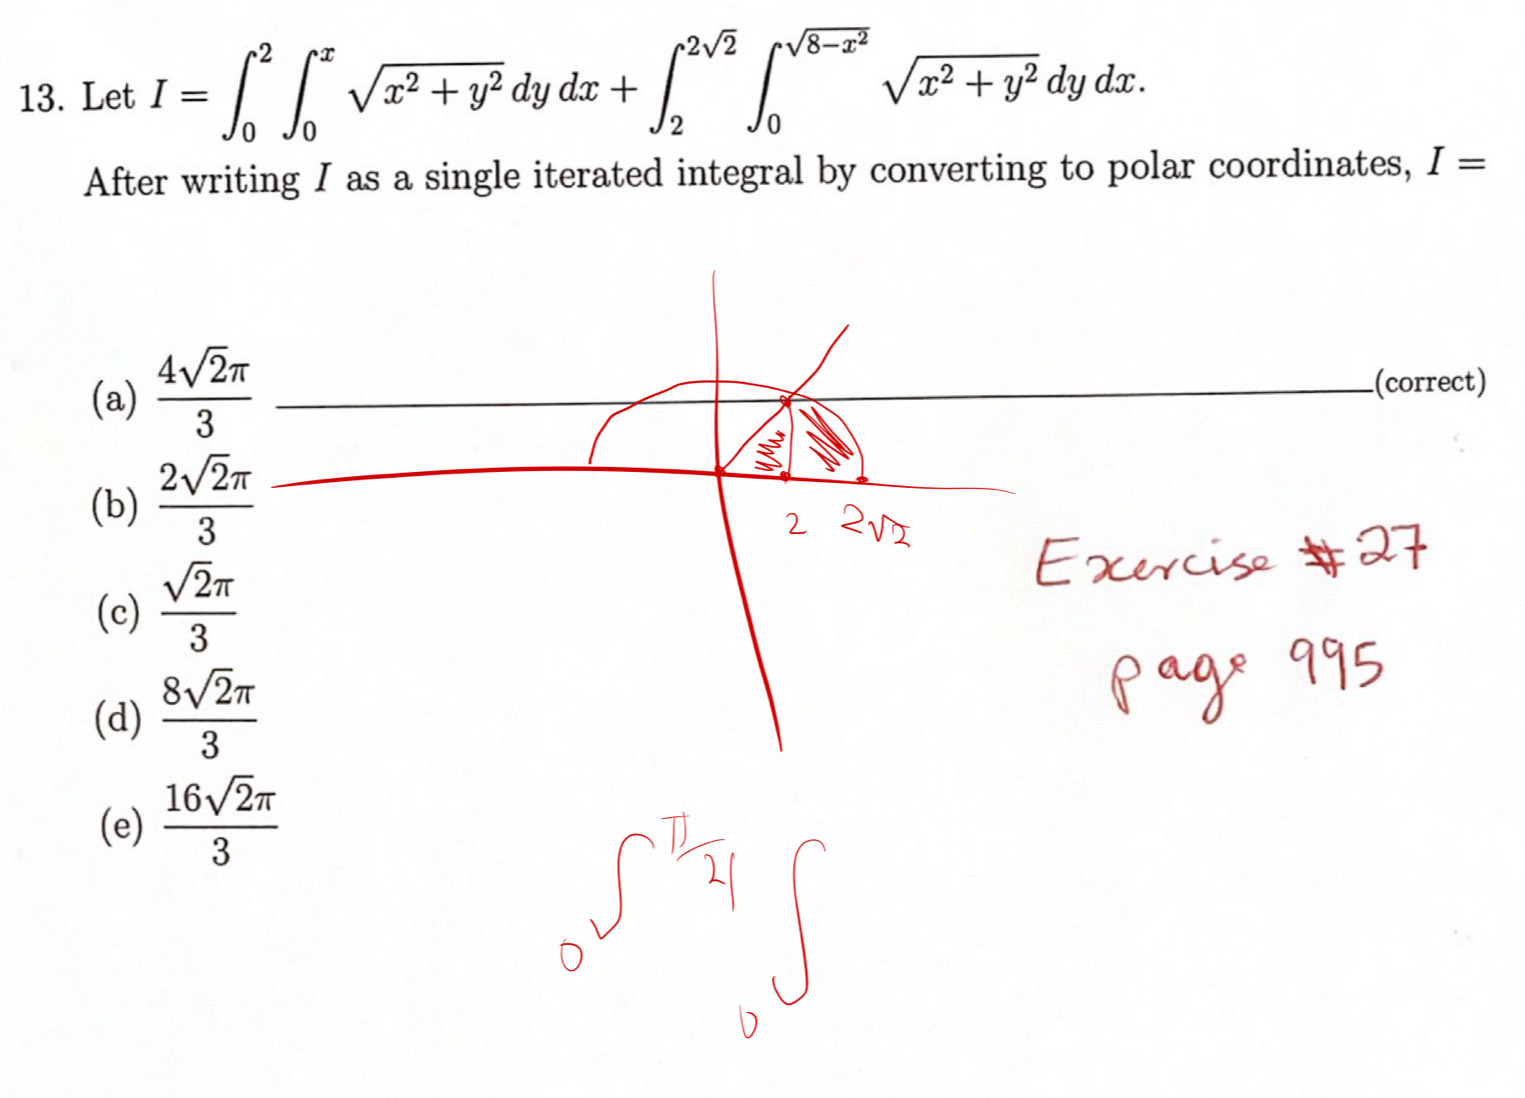 13. Let I = ∫₀² ∫₀ˣ √(x² + y²) dy dx + ∫₂^{2√2} ∫₀^{√(8−x²)} √(x² + y²) dy dx.
After writing I as a single iterated integral by converting to polar coordinates, I =
(a) 4√2π/3 (correct)
(b) 2√2π/3
(c) √2π/3
(d) 8√2π/3
(e) 16√2π/3
2 2√2
Exercise #27
page 995
∫₀^{π/4} ∫₀